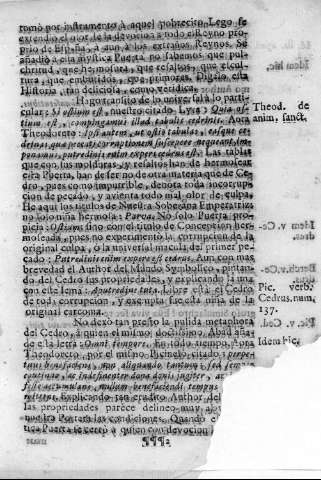 tomò por instrumento à aquel pobrecito Lego se
extendiò el olor de la devocion à todo el Reyno pro-
prio de España, à aun à los extraños Reynos. Se
añadiò à esta mystica Puerta no sabemos que pul-
chritud, que hermosura, que resalios, que escul-
tura, que embutidos, que primores. Digalo esta
Historia, tan deliciosa, como veridica.
Hago transito de lo universal à lo parti-
cular: Si ostium est, nuestro citado Lyra: Quia os-
tium est, compingamus illud tabulis cedrinis. Aora
Theodoreto: Ipsi autem, ut ostio tabulas, easque ce-
drinas, quæ putrè, corruptionem suscipere nequeant, im-
ponamus, putredinis enim expers cedrus est. Las tablas
que con las molduras, y resaltos han de hermosear
esta Puerta, han de ser no de otra materia que de Ce-
dro, pues como imputrible, denota toda incorrup-
cion de pecado, y avienta todo mal olor de culpa.
He aqui los titulos de Nuestra Soberana Emperatriz
no solo niña hermosa: Parva. No solo Puerta pro-
picia: Ostium: sino con el titulo de Concepcion her-
moseada, pues no experimentò la corrupcion de la
original culpa, ò la universal macula del primer pe-
cado: Putredinis enim expers est cedrus. Aun con mas
brevedad el Author del Mundo Symbolico, pintan-
do del Cedro las propriedades, y explicando una
con este lema: A putredine tuta, libre està el Cedro
de toda corrupcion, y exempta fue esta niña de la
original carcoma.
No dexò tan presto la pulida metaphora
del Cedro, à quien el mismo doctissimo Abad aña-
de esta letra: Omni tempore. En todo tiempo. Aora
Theodoreto, por el mismo Picinelo citado: perpe-
tuus beneficus, non aliquando tantum, sed semper
continue, ac indesinenter dona donis jugiter, ac
sine accumulans, nullum beneficiendi tempus
Explicando tan erudito Author del
las propriedades parece delineò muy al
nuestra Puerta las condiciones. Quando e
tica Puerta se cerrò à quien con devocion
¶¶¶2
Theod. de
anim. sanct.
Pic. verb.
Cedrus. num.
137.
Idem hic.